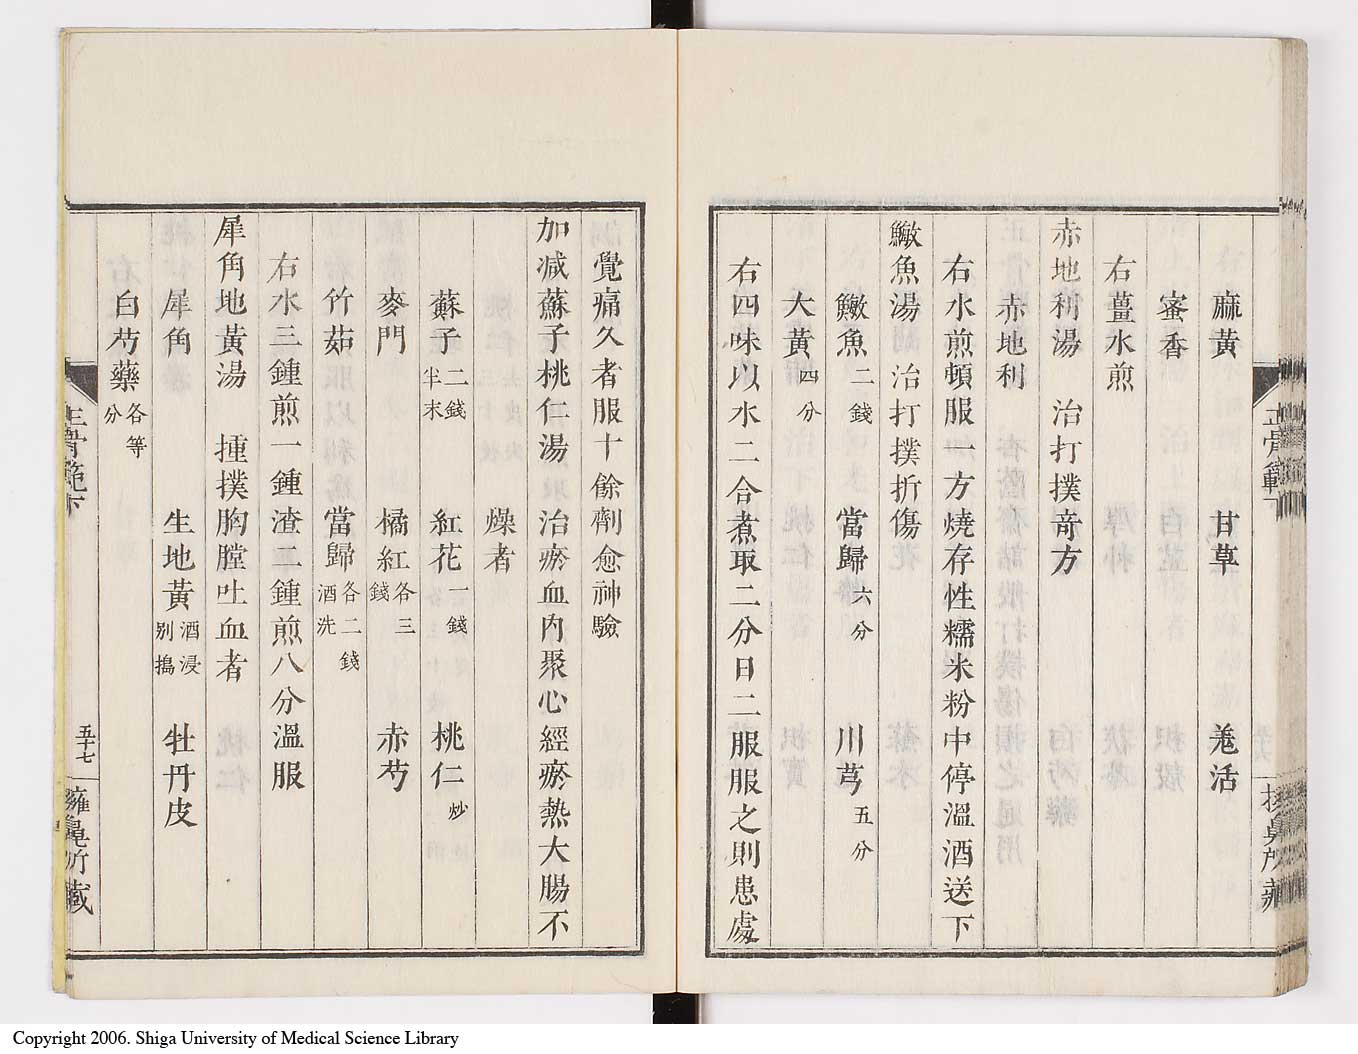 麻黃　甘草　羗活
蜜香
右薑水煎
赤地利湯　治打撲竒方
赤地利
右水煎頓服一方燒存性糯米粉中停溫酒送下
鱖魚湯　治打撲折傷
鱖魚二錢　當歸六分　川芎五分
大黃四分
右四味以水二合煮取二分日二服服之則患處
覺痛久者服十餘劑愈神驗
加減蘇子桃仁湯　治瘀血內聚心經瘀熱大腸不
燥者
蘇子二錢半末　紅花一錢　桃仁炒
麥門　橘紅各三錢　赤芍
竹茹　當歸各二錢酒洗
右水三鍾煎一鍾渣二鍾煎八分溫服
犀角地黃湯　㨂撲胸膛吐血者
犀角　生地黃酒浸别搗　牡丹皮
白芍藥各等分
正骨範下　五十七
Copyright 2006. Shiga University of Medical Science Library